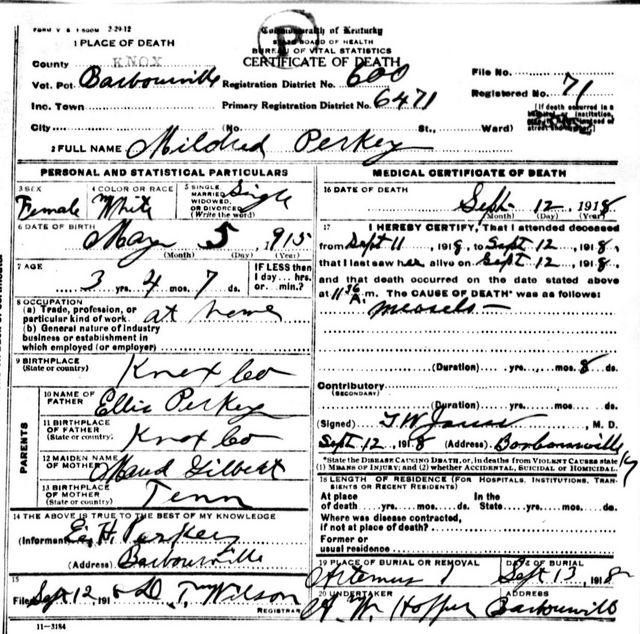 FORM V S 1 500M 2-29-12
Commonwealth of Kentucky
STATE BOARD OF HEALTH
BUREAU OF VITAL STATISTICS
CERTIFICATE OF DEATH
P
1 PLACE OF DEATH
County KNOX
Vot. Pct. Barbourville Registration District No. 600
Inc. Town Primary Registration District No. 6471
City (No. St., Ward)
File No.
Registered No. 71
[If death occurred in a
2 FULL NAME Mildred Perkey
PERSONAL AND STATISTICAL PARTICULARS
3 SEX Female
4 COLOR OR RACE White
5 SINGLE, MARRIED, WIDOWED, OR DIVORCED (Write the word) Single
6 DATE OF BIRTH May 5, 1915
(Month) (Day) (Year)
7 AGE 3 yrs. 4 mos. 7 ds.
IF LESS than 1 day... hrs. or. min.?
8 OCCUPATION
(a) Trade, profession, or particular kind of work at home
(b) General nature of industry
business or establishment in
which employed (or employer)
9 BIRTHPLACE
(State or country) Knox Co
PARENTS
10 NAME OF FATHER Ellis Perkey
11 BIRTHPLACE OF FATHER (State or country) Knox Co
12 MAIDEN NAME OF MOTHER Maud Gilbert
13 BIRTHPLACE OF MOTHER (State or country) Tenn
14 THE ABOVE IS TRUE TO THE BEST OF MY KNOWLEDGE
(Informant) E. H. Perkey
(Address) Barbourville
15
Filed Sept 12, 191 D. T. Wilson
REGISTRAR
11-3184
MEDICAL CERTIFICATE OF DEATH
16 DATE OF DEATH
Sept 12, 1918
(Month) (Day) (Year)
17 I HEREBY CERTIFY, That I attended deceased
from Sept 11, 1918, to Sept 12, 1918,
that I last saw her alive on Sept 12, 1918,
and that death occurred on the date stated above
at 11 m. The CAUSE OF DEATH* was as follows:
measels
(Duration) yrs. mos. 8 ds.
Contributory
(SECONDARY)
(Duration) yrs. mos. ds.
(Signed) T W M. D.
Sept. 12, 1918 (Address) Barbourville
*State the DISEASE CAUSING DEATH, or, in deaths from VIOLENT CAUSES state
(1) MEANS OF INJURY; and (2) whether ACCIDENTAL, SUICIDAL or HOMICIDAL.
18 LENGTH OF RESIDENCE (FOR HOSPITALS, INSTITUTIONS, TRANSIENTS OR RECENT RESIDENTS)
At place In the
of death yrs. mos. ds. State yrs. mos. ds.
Where was disease contracted,
if not at place of death?
Former or
usual residence
19 PLACE OF BURIAL OR REMOVAL Artemus
DATE OF BURIAL Sept 13, 1918
20 UNDERTAKER A. M. Hopper
ADDRESS Barbourville